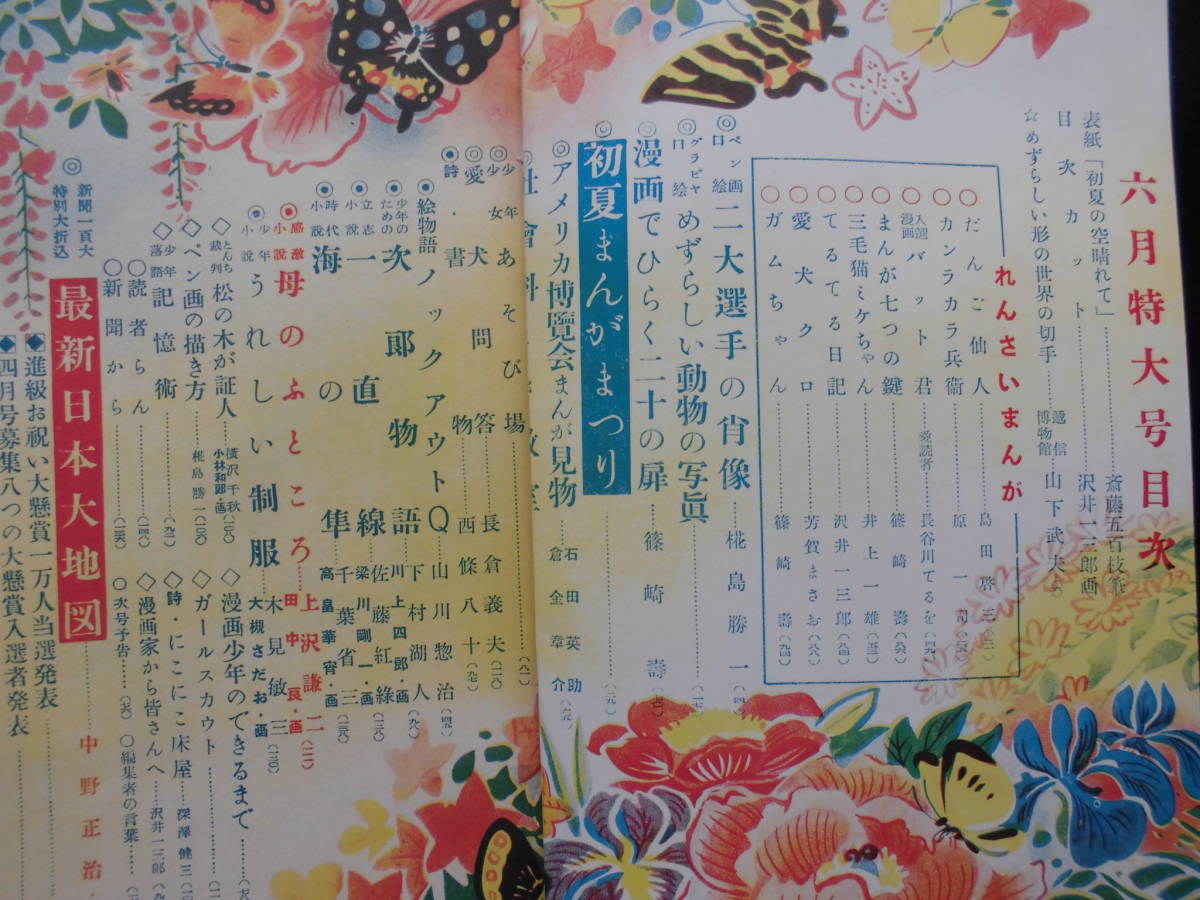 六月特大号目次
表紙「初夏の空晴れて」 斎藤五百枝筆
目次カット 沢井一三郎画
☆めずらしい形の世界の切手 逓信博物館 山下武夫
れんさいまんが
○だんご仙人 島田啓三
○カンラカラ兵衛 原一司
○入選漫画 バット君 愛読者 長谷川てるを
○まんが七つの鍵 篠崎壽
○三毛猫ミケちゃん 井上一雄
○てるてる日記 沢井一三郎
○愛犬クロ 芳賀まさお
○ガムちゃん 篠崎壽
◎ペン画口絵 二大選手の肖像 椛島勝一
◎グラビヤ口絵 めずらしい動物の写眞
◎漫画でひらく二十の扉 篠崎壽
◎初夏まんがまつり
◎アメリカ博覽会まんが見物 石田英助 倉金章介
◎少年少女 あそび場
◎愛犬問答 長倉義夫
◉詩・書物 西條八十
◉絵物語 ノックアウトQ 山川惣治
◉少年のための 次郎物語 下村湖人 川上四郎・画
◉立志小説 一直線 佐藤紅綠 梁川剛一・画
◉時代小説 海の隼 千葉省三 高畠華宵・画
◉感激小説 母のふところ 上沢謙二 田中良・画
◉少年小説 うれしい制服 木見敏三 大槻さだお・画
◇とんち裁判 松の木が証人 横沢千秋 小林和郎・画
◇ペン画の描き方 椛島勝一
◇少年落語 記憶術
○読者らん
○新聞から
◇漫画少年のできるまで
◇ガールスカウト
◇詩・にこにこ床屋 深澤健三
◇漫画家から皆さんへ 沢井一三郎
○次号予告
○編集者の言葉
◎新聞一頁大特別大折込 最新日本大地図 中野正治
◆進級お祝い大懸賞一万人当選発表
◆四月号募集八つの大懸賞入選者発表